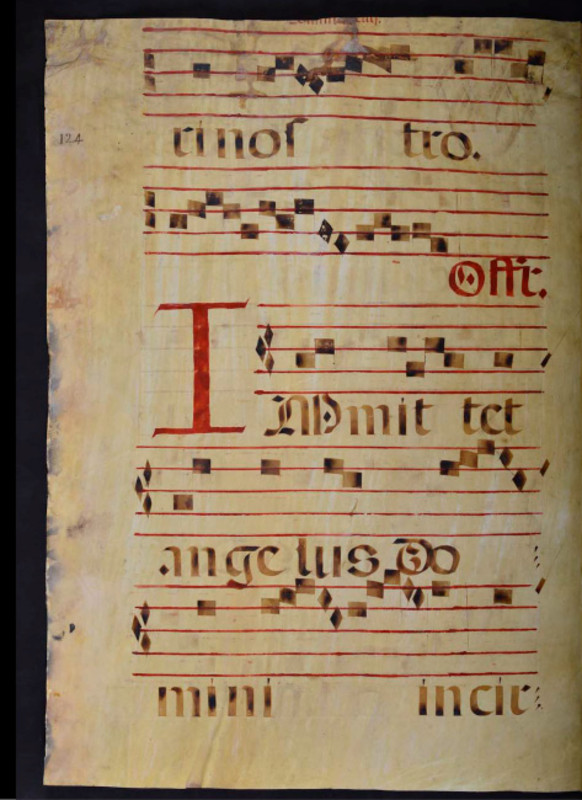 124
ri nos tro.
Offr.
INmit tet
angelus Do
mini incir